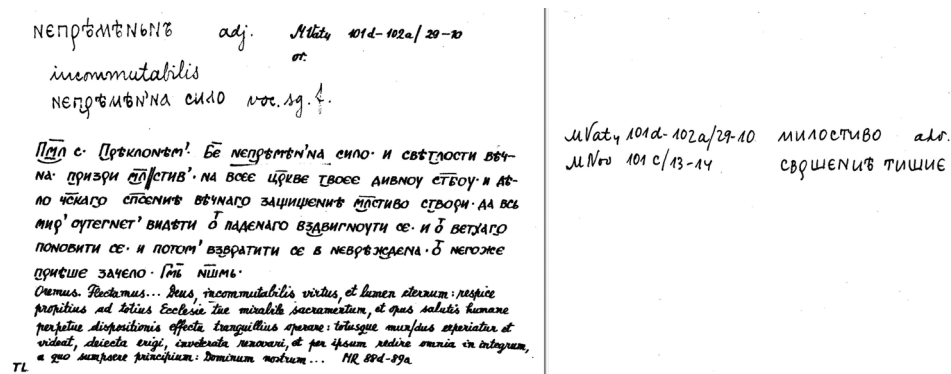 непрѣмѣньнъ adj. MVat4 101d-102a/29-10
or.
incommutabilis
непрѣмѣн'на сило voc. sg. f.
Пмл с. Прѣклонѣм'. Бе непрѣмѣн'на сило· и свѣтлости вѣч-
на· призри мл|стив'· на всее цркве твоее дивноу ствоу· и дѣ-
ло чскаго спсениѣ вѣчнаго защищениѣ млстиво створи· да всь
мир' оутегнет' видѣти ѿ паденаго вздвигноути се· и ѿ ветхаго
поновити се· и потом' взвратити се в неврѣждена· ѿ негоже
приеше зачело· Гмь ншмь·
Oremus. Flectamus... Deus, incommutabilis virtus, et lumen eternum: respice
propitius ad totius Ecclesie tue mirabile sacramentum, et opus salutis humane
perpetue dispositionis effectu tranquillius operare: totusque mun/dus experiatur et
videat, deiecta erigi, inveterata renovari, et per ipsum redire omnia in integrum,
a quo sumpsere principium: Dominum nostrum... MR 88d-89a
TL
MVat4 101d-102a/29-10 милостиво adv.
MNov 101c/13-14 свршениѣ тишие